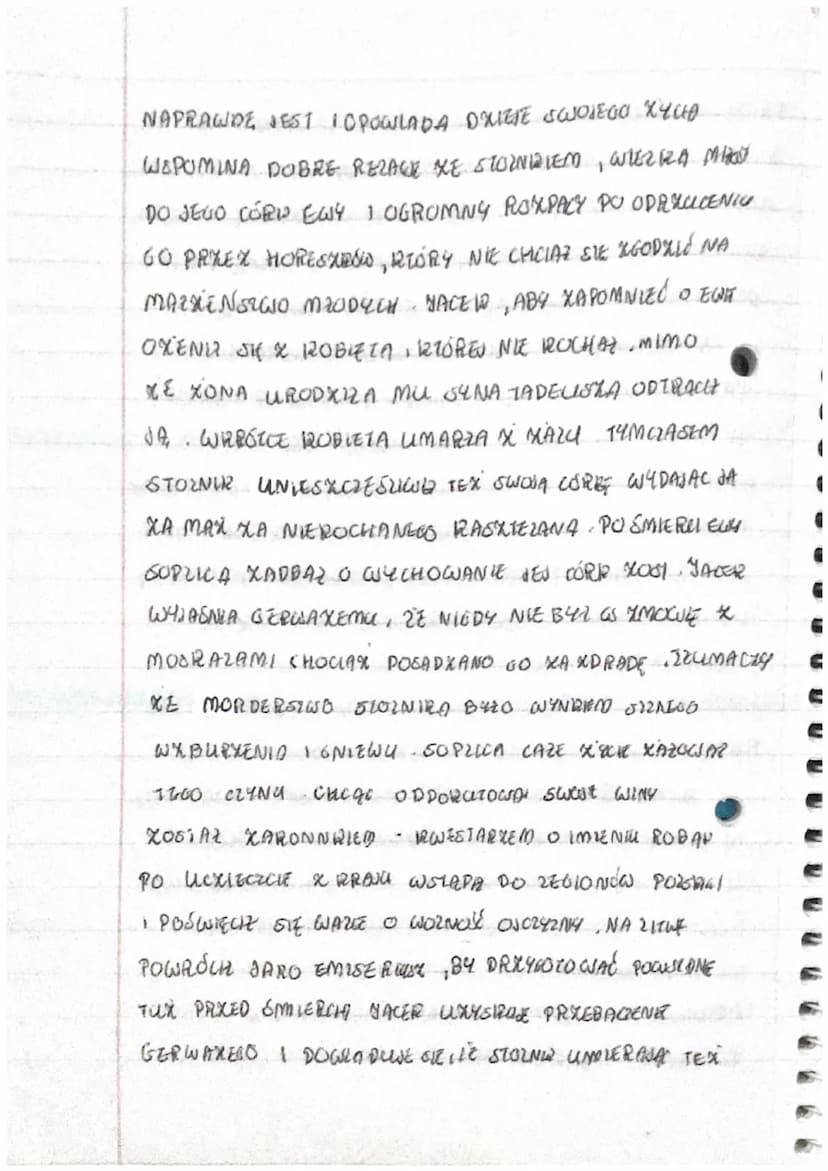 NAPRAWDĘ JEST I OPOWIADA DZIEJE SWOJEGO ŻYCIA
WSPOMINA DOBRE RELACJE ZE STOLNIKIEM, WIELKĄ MIŁOŚĆ
DO JEGO CÓRKI EWY I OGROMNY ROZPACZ PO ODRZUCENIU
GO PRZEZ HORESZKÓW, KTÓRY NIE CHCIAŁ SIĘ ZGODZIĆ NA
MAŁŻEŃSTWO MŁODYCH. JACEK, ABY ZAPOMNIEĆ O EWIE
OŻENIŁ SIĘ Z KOBIETĄ, KTÓREJ NIE KOCHAŁ. MIMO
ŻE ŻONA URODZIŁA MU SYNA TADEUSZA ODTRĄCIŁ
JĄ. WKRÓTCE KOBIETA UMARŁA Z ŻALU TYMCZASEM
STOLNIK UNIESZCZĘŚLIWIŁ TEŻ SWOJĄ CÓRKĘ WYDAJĄC JĄ
ZA MĄŻ ZA NIEKOCHANEGO KASZTELANA. PO ŚMIERCI EWY
SOPLICA ZADBAŁ O WYCHOWANIE JEJ CÓRKI ZOSI. JACEK
WYJAŚNIA GERWAZEMU, ŻE NIGDY NIE BYŁ W ZMOWIE Z
MOSKALAMI CHOCIAŻ POSĄDZANO GO ZA ZDRADĘ. TŁUMACZY
ŻE MORDERSTWO STOLNIKA BYŁO WYNIKIEM SILNEGO
WZBURZENIA I GNIEWU. SOPLICA CAŁE ŻYCIE ŻAŁOWAŁ
TEGO CZYNU. CHCĄC ODPOKUTOWAĆ SWOJE WINY
ZOSTAŁ ZAKONNIKIEM - KWESTARZEM O IMIENIU ROBAK
PO UCIECZCE Z KRAJU WSTĄPIŁ DO LEGIONÓW POLSKICH
I POŚWIĘCIŁ SIĘ WALCE O WOLNOŚĆ OJCZYZNY. NA LITWĘ
POWRÓCIŁ JAKO EMISARIUSZ, BY PRZYGOTOWAĆ POWSTANIE
TUŻ PRZED ŚMIERCIĄ JACEK UZYSKUJE PRZEBACZENIE
GERWAZEGO I DOWIADUJE SIĘ, IŻ STOLNIK UMIERAJĄC TEŻ